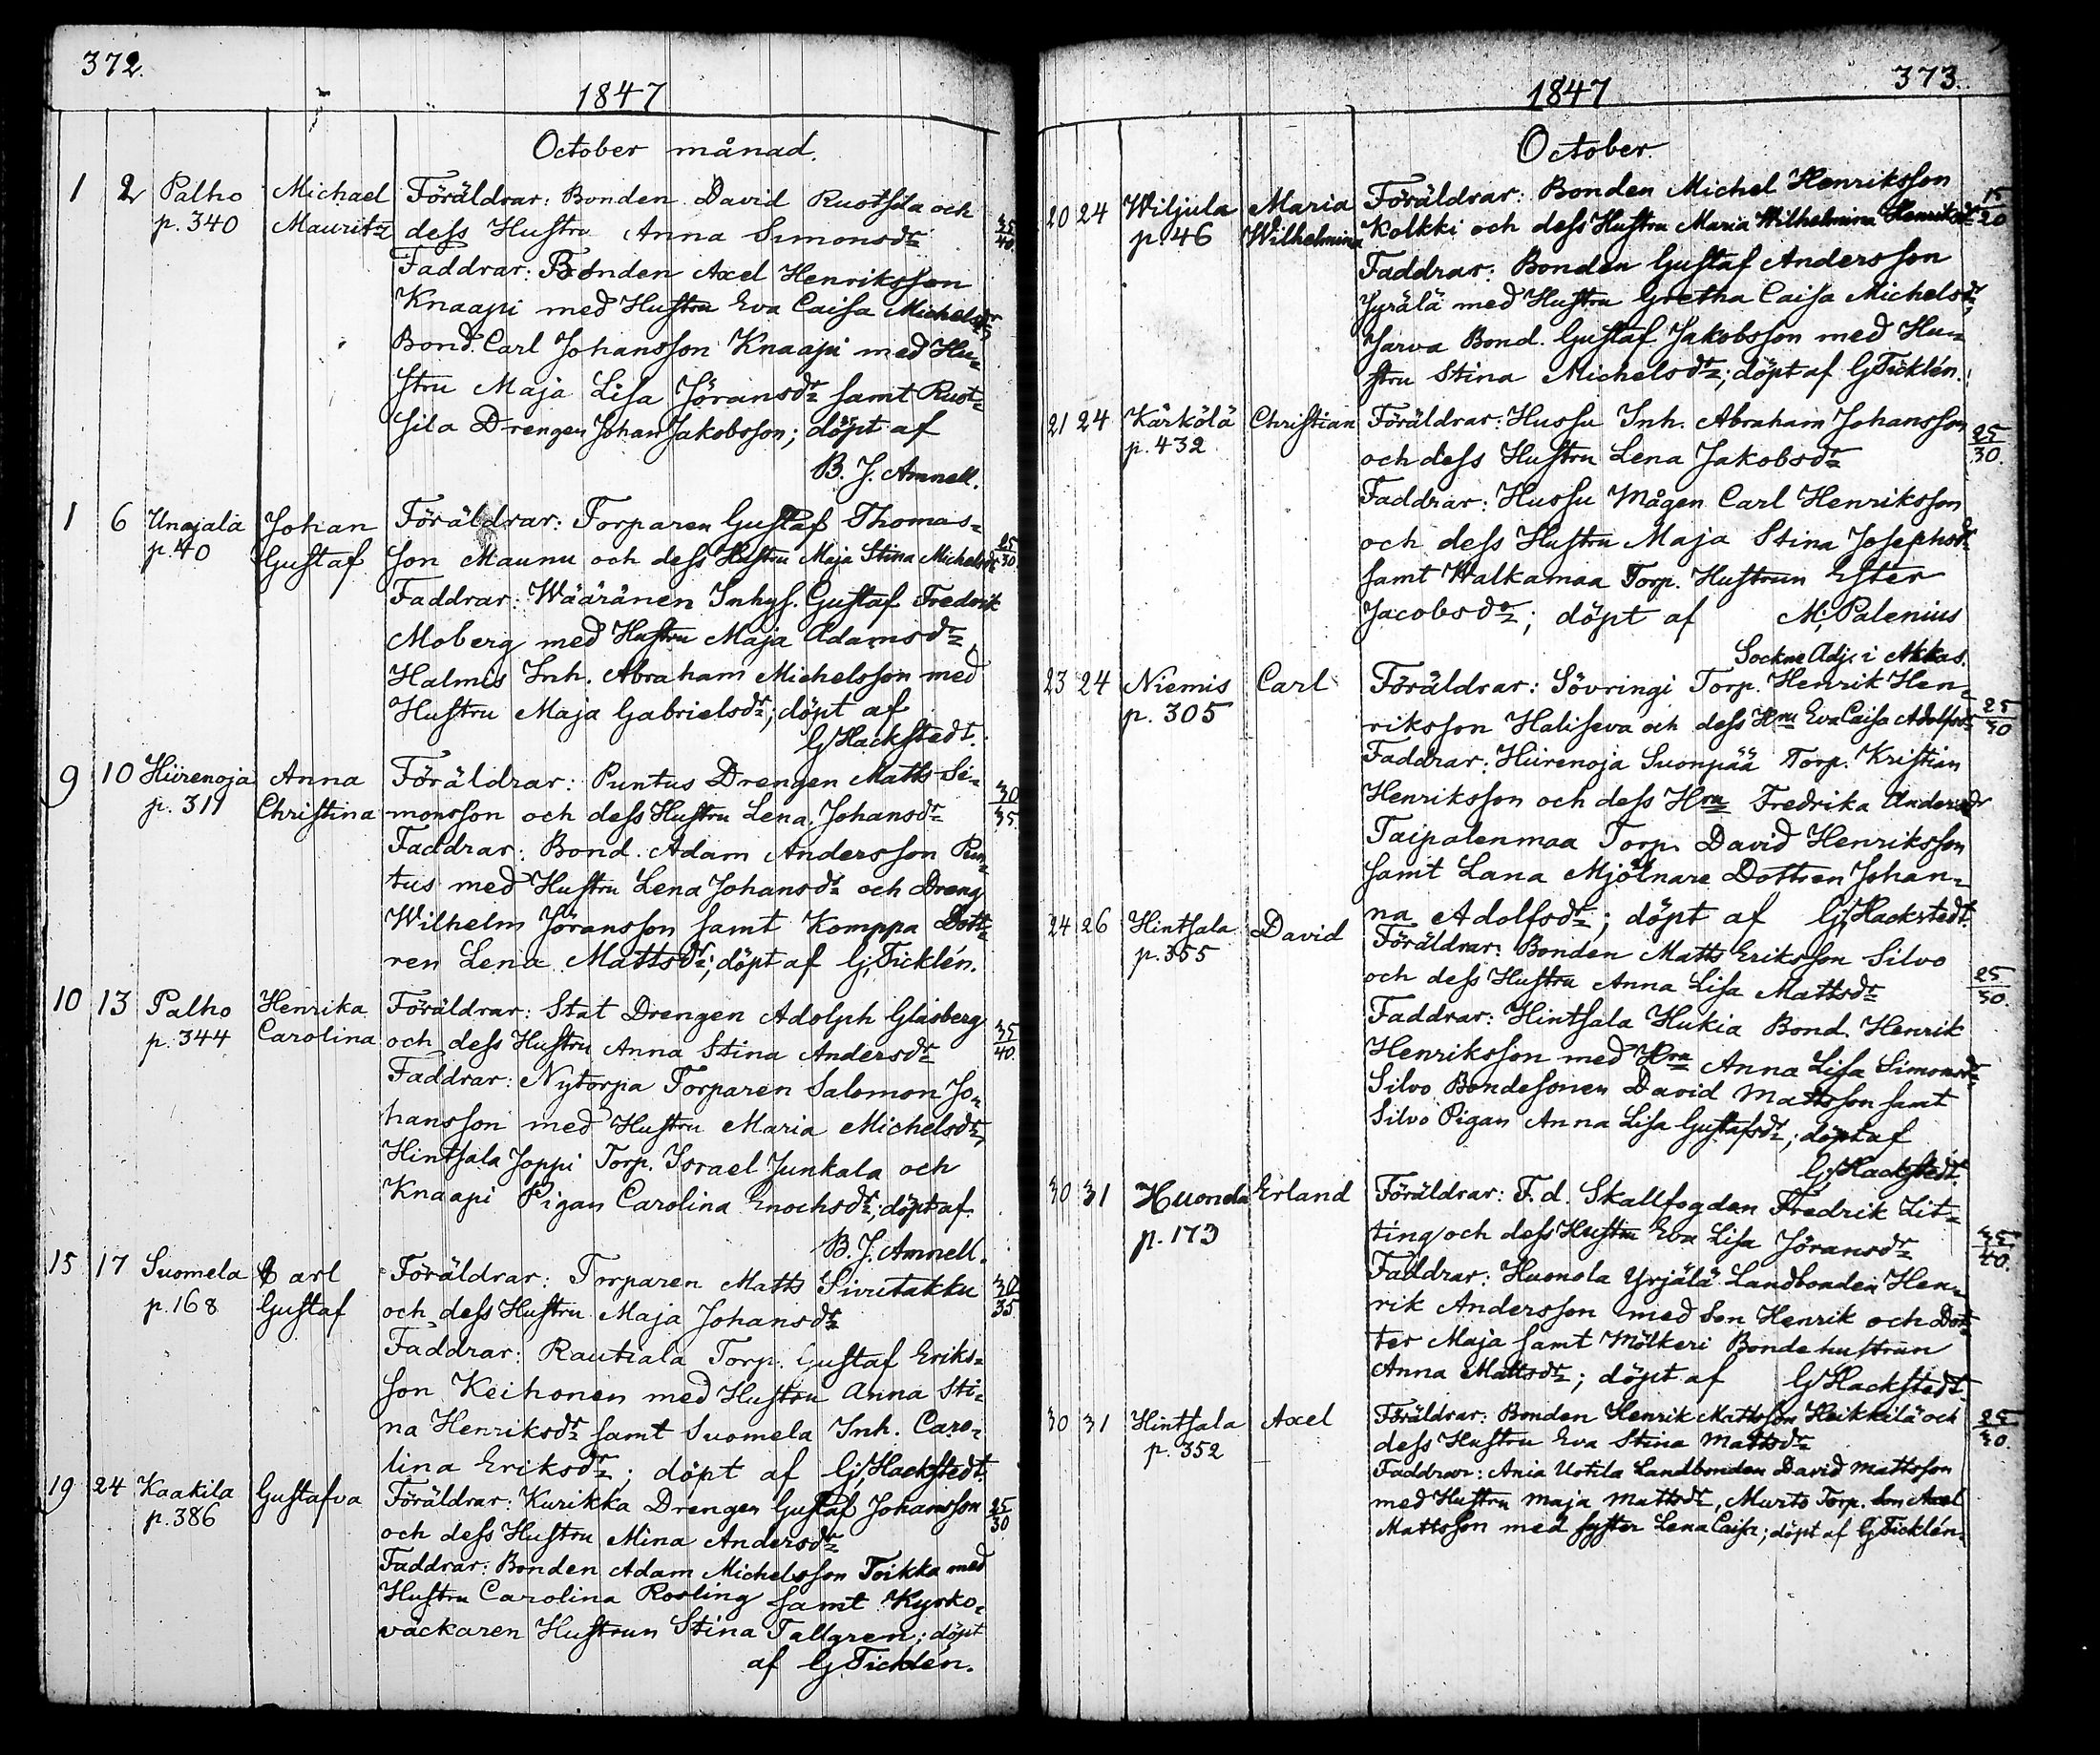 372.
1847
October månad.
1 2 Palho Michael Föräldrar: Bonden David Ruotsila och
p. 340 Mauritz dess Hustru Anna Simonsdr 35/40.
Faddrar: Bonden Axel Henriksson
Knaapi med Hustru Eva Caisa Michelsdr,
Bond. Carl Johansson Knaapi med Hu=
stru Maja Lisa Jöransdr samt Ruot=
sila Drengen Johan Jakobsson; döpt af
B. J. Amnell.
1 6 Unajala Johan Föräldrar: Torparen Gustaf Thomas=
p. 40 Gustaf son Maunu och dess Hustru Maja Stina Michelsdr 25/30.
Faddrar: Wääränen Inhys. Gustaf Fredrik
Moberg med Hustru Maja Adamsdr,
Halmis Inh. Abraham Michelsson med
Hustru Maja Gabrielsdr; döpt af
G. Hackstedt.
9 10 Hiirenoja Anna Föräldrar: Puntus Drengen Matts Si=
p. 311 Christina monsson och dess Hustru Lena Johansdr 30/35.
Faddrar: Bond. Adam Andersson Pun=
tus med Hustru Lena Johansdr och Dreng
Wilhelm Jöransson samt Komppa Dott=
ren Lena Mattsdr; döpt af G. Ticklén.
10 13 Palho Henrika Föräldrar: Stat Drengen Adolph Glasberg
p. 344 Carolina och dess Hustru Anna Stina Andersdr 35/40.
Faddrar: Nytorpa Torparen Salomon Jo=
hansson med Hustru Maria Michelsdr,
Hintsala Joppi Torp. Israel Junkala och
Knaapi Pigan Carolina Enochsdr; döpt af
B. J. Amnell.
15 17 Suomela Carl Föräldrar: Torparen Matts Siuritakku 30/35.
p. 168 Gustaf och dess Hustru Maja Johansdr
Faddrar: Rautiala Torp. Gustaf Eriks=
son Keihonen med Hustru Anna Sti=
na Henriksdr samt Suomela Inh. Caro=
lina Eriksdr; döpt af G. Hackstedt.
19 24 Kaakila Gustafva Föräldrar: Kurikka Drengen Gustaf Johansson 25/30
p. 386 och dess Hustru Mina Andersdr
Faddrar: Bonden Adam Michelsson Toikka med
Hustru Carolina Rosling samt Kyrko=
väckaren Hustrun Stina Tallgren; döpt
af G. Ticklén.
373.
1847
October.
20 24 Wiljula Maria Föräldrar: Bonden Michel Henriksson 15/20
p. 46 Wilhelmina Kolkki och dess Hustru Maria Wilhelmina Henriksdr
Faddrar: Bonden Gustaf Andersson
Yyrälä med Hustru Gretha Caisa Michelsdr,
Jarva Bond. Gustaf Jakobsson med Hu=
stru Stina Michelsdr; döpt af G. Ticklén.
21 24 Kärkölä Christian Föräldrar: Hussu Inh. Abraham Johansson 25/30.
p. 432 och dess Hustru Lena Jakobsdr
Faddrar: Hussu Mågen Carl Henriksson
och dess Hustru Maja Stina Josephsdr
samt Walkamaa Torp. Hustrun Ester
Jacobsdr; döpt af M. Palenius
Sockne Adj. i Akkas.
23 24 Niemis Carl Föräldrar: Sövringi Torp. Henrik Hen=
p. 305 riksson Haliseva och dess Hru Eva Caisa Adolfsdr 25/30
Faddrar: Hiirenoja Suonpää Torp. Kristian
Henriksson och dess Hru Fredrika Andersdr
Taipalenmaa Torp. David Henriksson
samt Lana Mjölnare Dottren Johan=
na Adolfsdr; döpt af G. Hackstedt.
24 26 Hintsala David Föräldrar: Bonden Matts Eriksson Silvo
p. 355 och dess Hustru Anna Lisa Mattsdr 25/30.
Faddrar: Hintsala Hukia Bond. Henrik
Henriksson med Hru Anna Lisa Simonsdr
Silvo Bondesonen David Mattsson samt
Silvo Pigan Anna Lisa Gustafsdr; döpt af
G. Hackstedt.
30 31 Huonola Erland Föräldrar: F.d. Skallfogden Fredrik Lit=
p. 173 ting och dess Hustru Eva Lisa Jöransdr 35/40.
Faddrar: Huonola Yrjälä Landbonden Hen=
rik Andersson med Son Henrik och Dot=
ter Maja samt Mölkeri Bondehustrun
Anna Mattsdr; döpt af G. Hackstedt.
30 31 Hintsala Axel Föräldrar: Bonden Henrik Mattsson Heikkilä och 25/30.
p. 352 dess Hustru Eva Stina Mattsdr
Faddrar: Ania Uotila Landbonden David Mattsson
med Hustru Maja Mattsdr, Murto Torp. Son Axel
Mattsson med syster Lena Caisa; döpt af G. Ticklén.